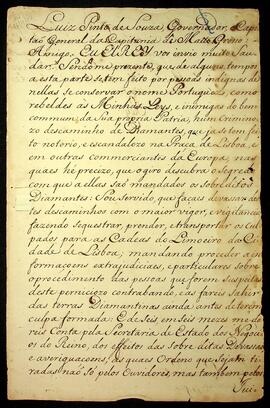 Luiz Pinto de Souza, Governador, e Capi-
tao General da Capitania de Matto Grosso
Amigo. Eu ELREY vos invio muito Sau-
dar. Sendome prezente, que de alguns tempos
a esta parte se tem feito por pessoas indignas de
nellas se conservar o nome Portuguez, como
rebeldes às Minhas Leys, e inimigas do bem
commum da Sua propria Patria, hum Crimino-
zo descaminho de Diamantes, que ja se tem
feito notorio, e escandalozo na Praça de Lisboa, e
em outras commerciantes da Europa, nas
quaes he precizo, que o giro descubra o Segredo,
com que a ellas saõ mandados os sobreditos
Diamantes: Sou servido, que façais devassar des-
tes descaminhos com o maior vigor, e vigilancia
fazendo sequestrar, prender, e transportar os cul-
pados para as Cadeas do Limoeiro da Ci-
dade de Lisboa; mandando proceder a in-
formaçoens extrajudiciaes, e particulares sobre
o procedimento das pessoas que forem suspeitas
deste perniciozo contrabando; e as fareis Sahir
das terras Diamantinas ainda antes de terem
culpa formada: E de Seis em Seis mezes me da-
reis Conta pela Secretaria de Estado dos Negoci-
os do Reino, dos effeitos das Sobreditas Devassas
e averiguacoens, as quaes Ordeno que Sejam ti-
radas naõ Só pelos Ouvidores, mas tambem pelos